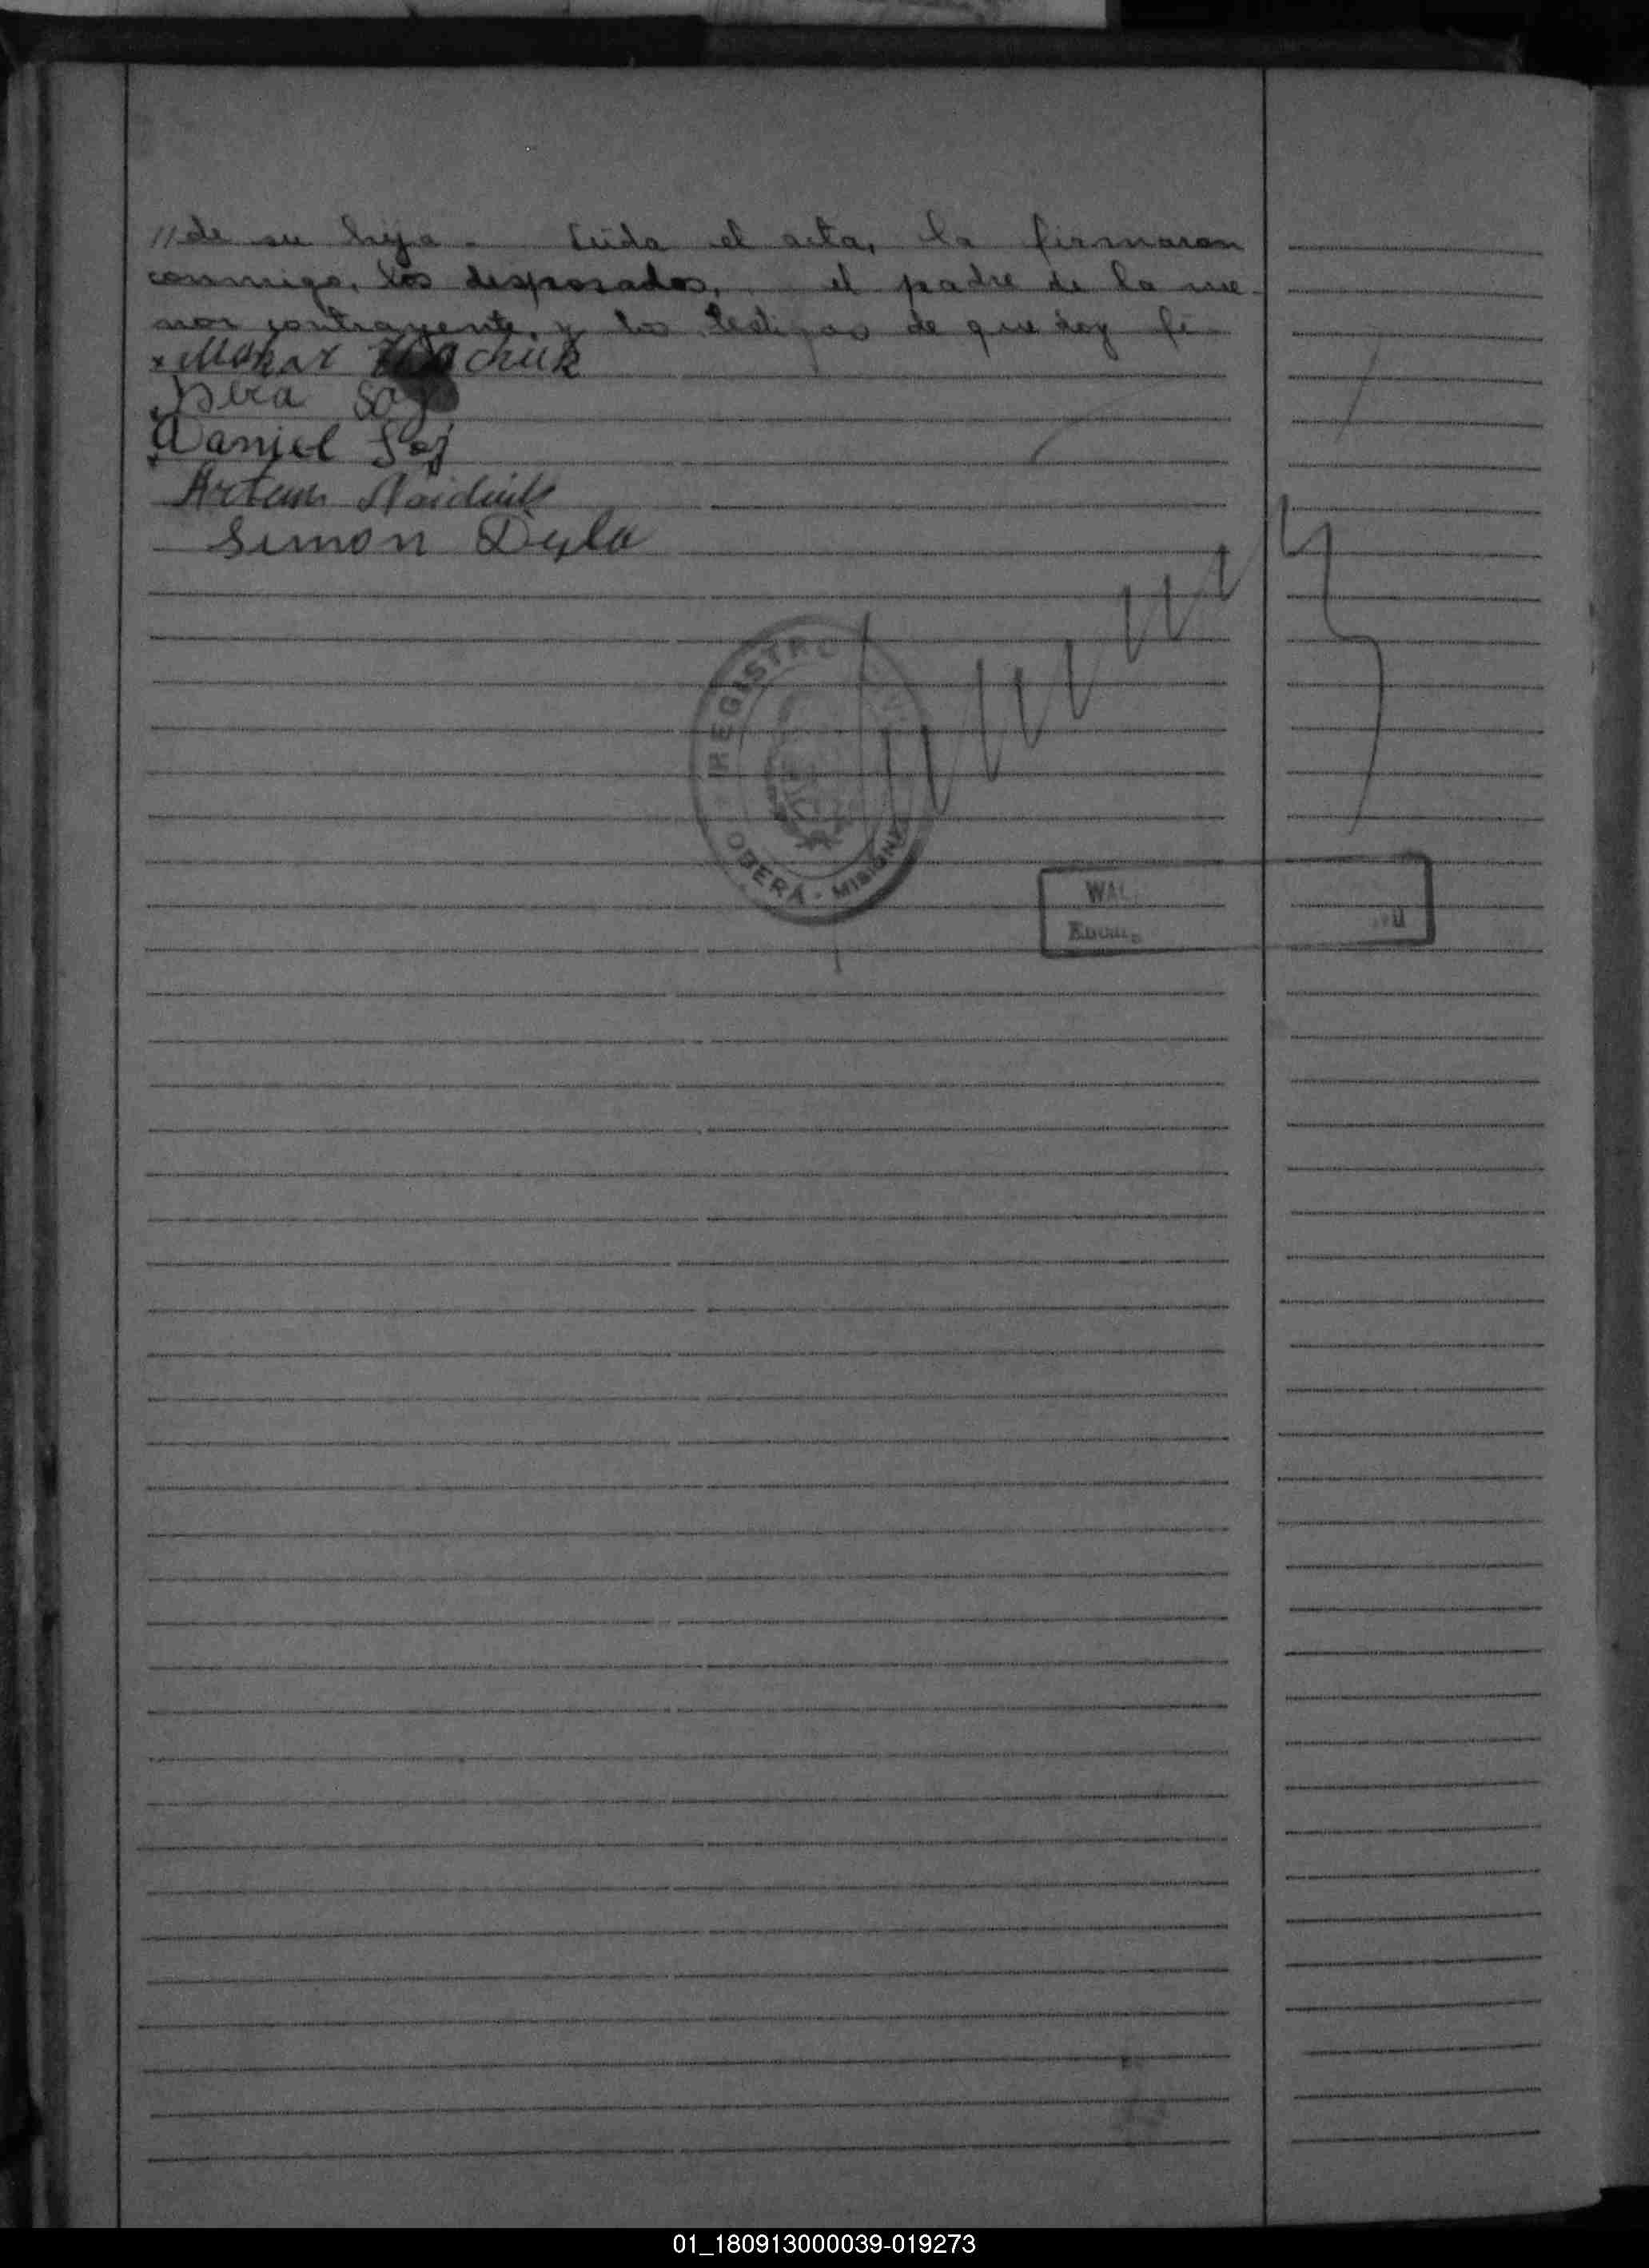 //de su hija. Leida el acta, la firmaron
conmigo, los desposados, el padre de la me-
nor contrayente, y los testigos de que doy fé
Makar chuk
Vera Soj
Daniel Soj
Artem Naidiuk
Simon Dyla
REGISTRO
OBERÁ - MISIONES
WAL
01_180913000039-019273